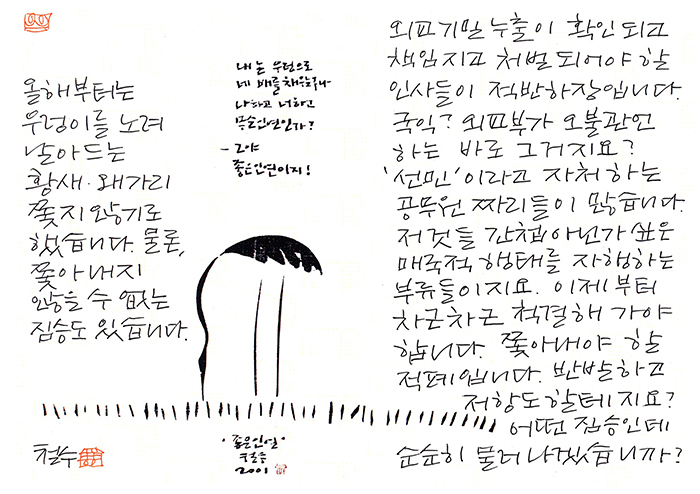 올해부터는
우렁이를 노려
날아드는
황새·왜가리
쫓지 않기로
했습니다. 물론,
쫓아내지
않을 수 없는
짐승도 있습니다.
내 논 우렁으로
네 배를 채웠구나
나하고 너하고
무슨인연인가?
- 그야
좋은인연이지!
외교기밀 누출이 확인되고
책임지고 처벌되어야 할
인사들이 적반하장입니다.
국익? 외교부가 오불관언
하는 바로 그거지요?
'선민'이라고 자처하는
공무원 짜리들이 많습니다.
저것들 간첩아닌가 싶은
매국적 행태를 자행하는
부류들이지요. 이제부터
차근차근 척결해 가야
합니다. 쫓아내야 할
적폐입니다. 반발하고
저항도할테지요?
어떤 짐승인데
순순히 물러나겠습니까?
철수
"좋은인연"
2001